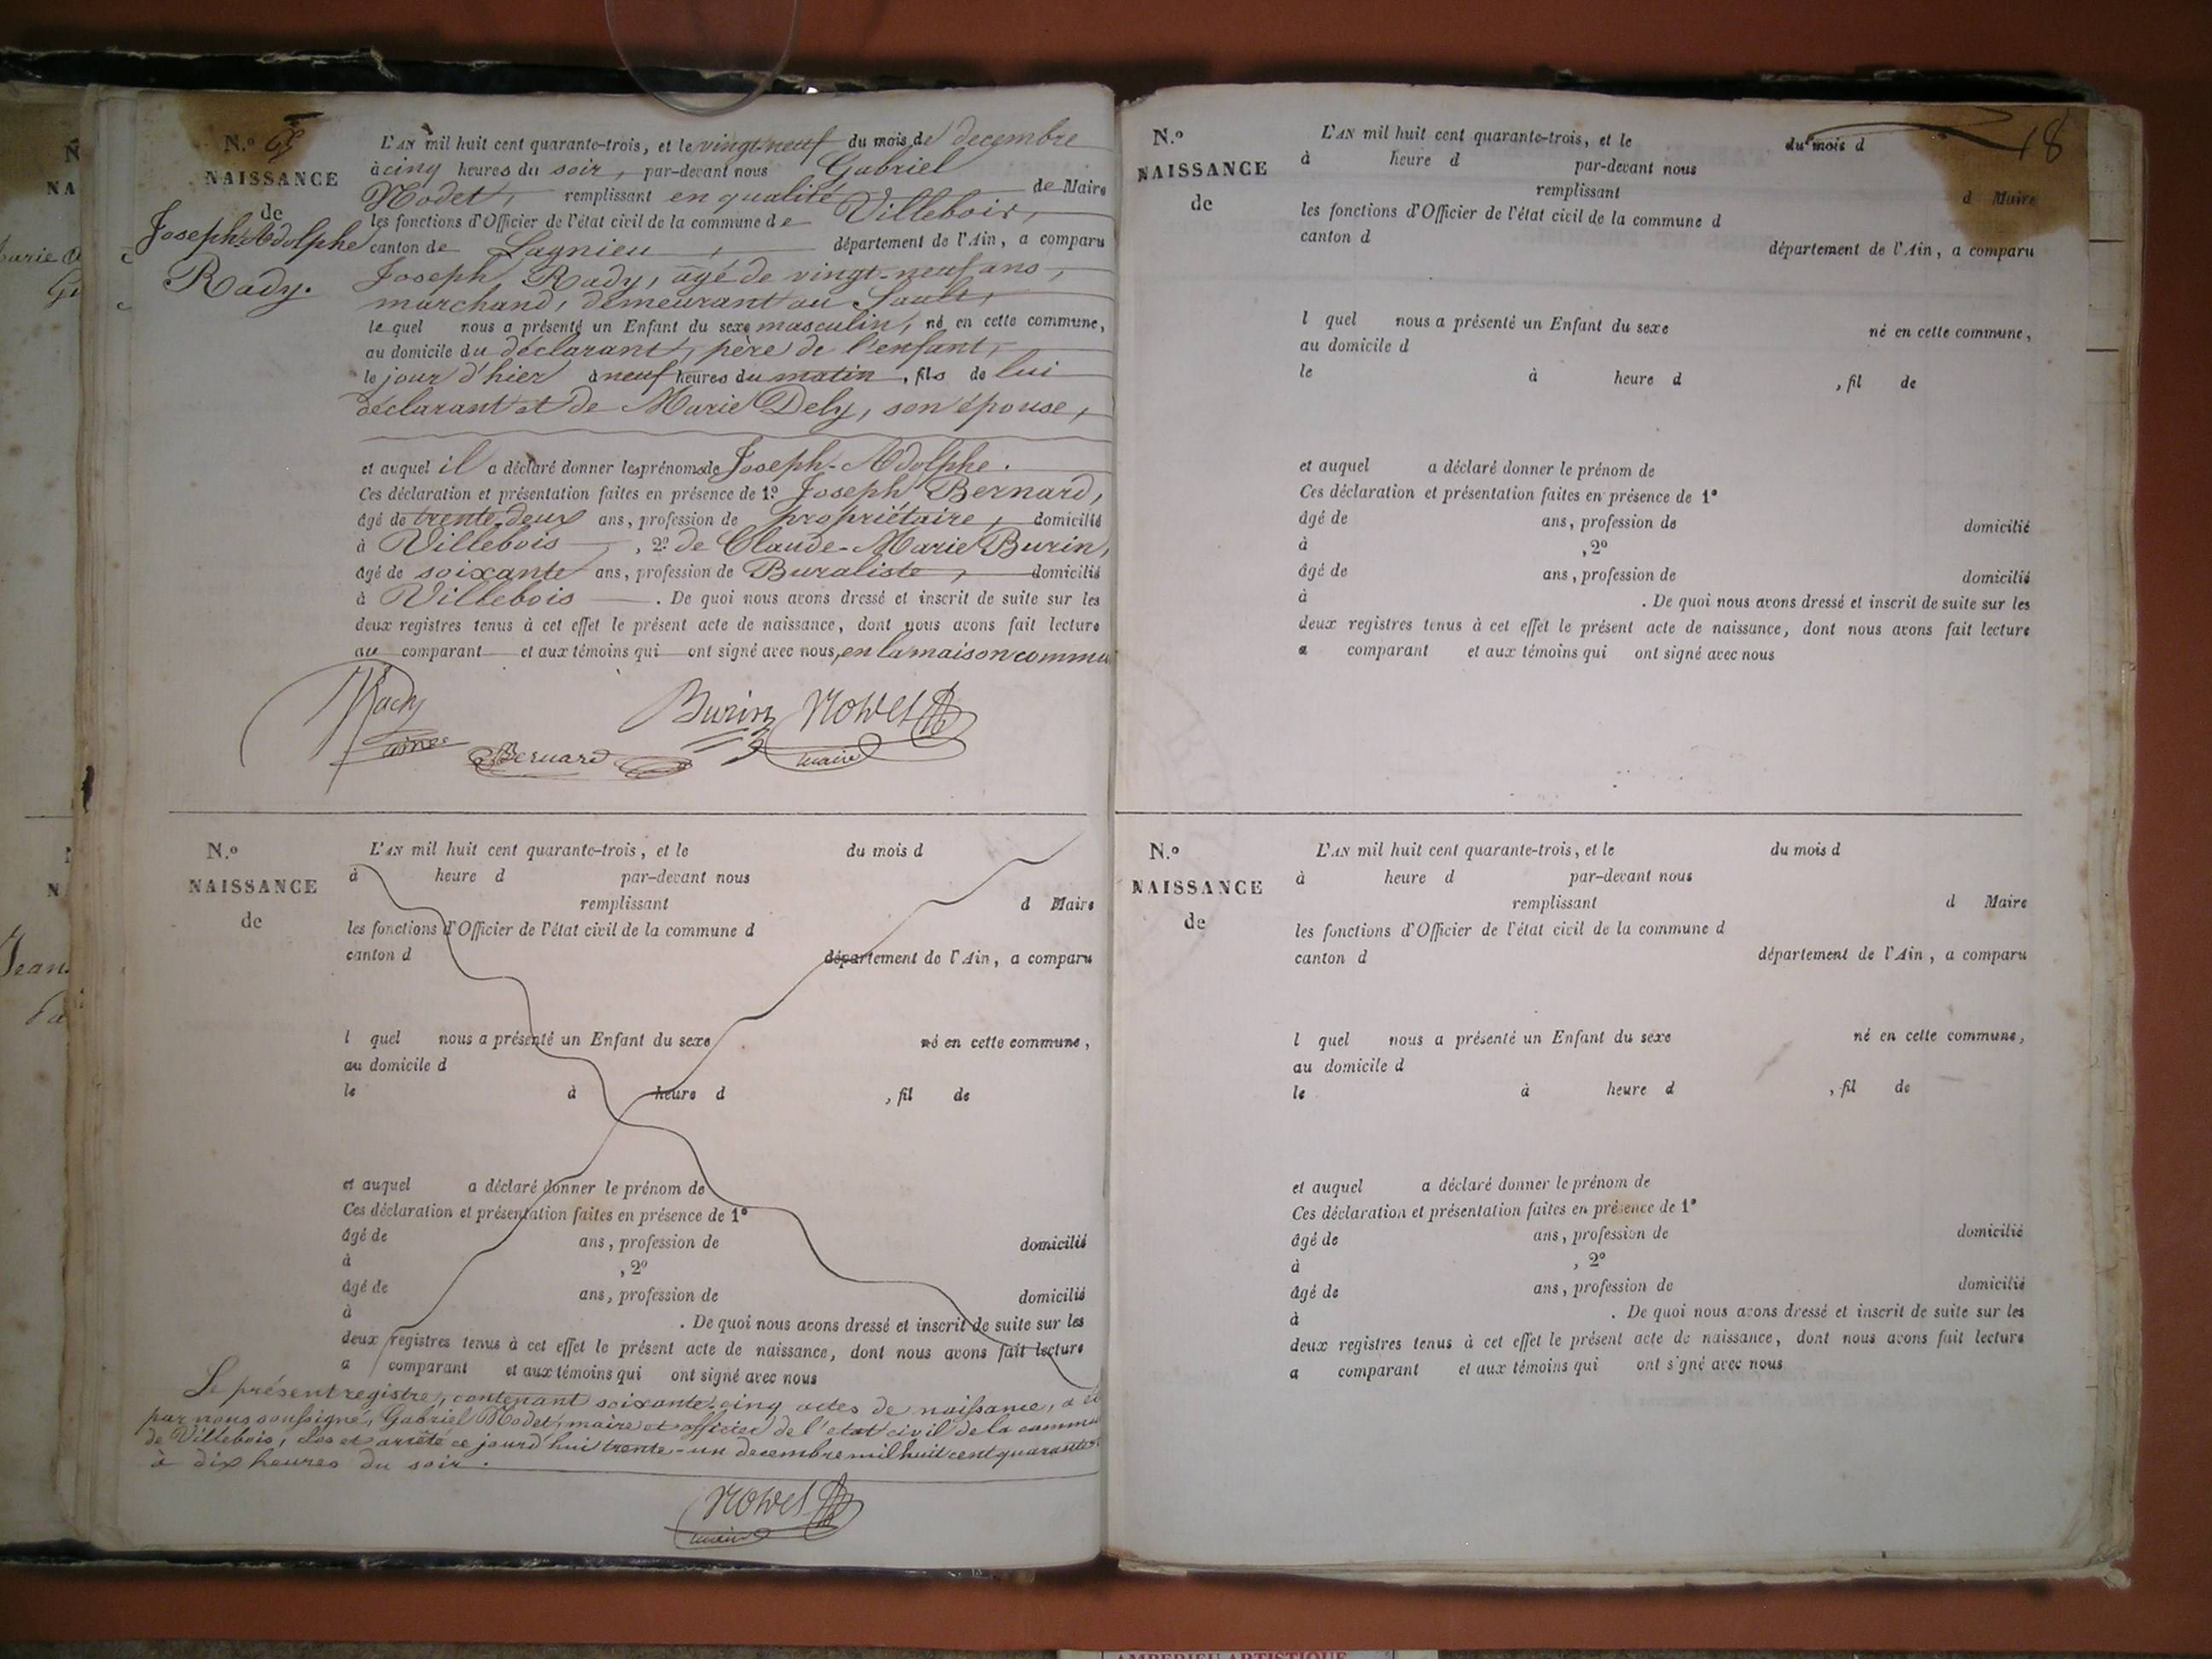 N.º 65
NAISSANCE
de
Joseph-Adolphe
Rady.
L'AN mil huit cent quarante-trois, et le vingt-neuf du mois de decembre
à cinq heures du soir, par-devant nous Gabriel
Nodet, remplissant en qualité de Maire
les fonctions d'Officier de l'état civil de la commune de Villebois,
canton de Lagnieu, département de l'Ain, a comparu
Joseph Rady, agé de vingt-neuf ans,
marchand, demeurant au Sault,
le quel nous a présenté un Enfant du sexe masculin, né en cette commune,
au domicile du déclarant, père de l'enfant,
le jour d'hier à neuf heures du matin, fils de lui
déclarant et de Marie Dely, son épouse,
et auquel il a déclaré donner les prénoms de Joseph-Adolphe.
Ces déclaration et présentation faites en présence de 1º Joseph Bernard,
âgé de trente-deux ans, profession de propriétaire, domicilié
à Villebois, 2º de Claude-Marie Burin,
âgé de soixante ans, profession de Buraliste, domicilié
à Villebois. De quoi nous avons dressé et inscrit de suite sur les
deux registres tenus à cet effet le présent acte de naissance, dont nous avons fait lecture
au comparant et aux témoins qui ont signé avec nous, en la maison commu
Rady
aîné
Bernard
Burin
Nodet
maire
N.º
NAISSANCE
de
L'AN mil huit cent quarante-trois, et le du mois d
à heure d par-devant nous
remplissant d Maire
les fonctions d'Officier de l'état civil de la commune d
canton d département de l'Ain, a comparu
l quel nous a présenté un Enfant du sexe né en cette commune,
au domicile d
le à heure d , fil de
et auquel a déclaré donner le prénom de
Ces déclaration et présentation faites en présence de 1º
âgé de ans, profession de domicilié
à , 2º
âgé de ans, profession de domicilié
à . De quoi nous avons dressé et inscrit de suite sur les
deux registres tenus à cet effet le présent acte de naissance, dont nous avons fait lecture
a comparant et aux témoins qui ont signé avec nous
Le présent registre, contenant soixante-cinq actes de naissance, a é
par nous soussigné, Gabriel Nodet, maire et officier de l'état civil de la commu
de Villebois, clos et arrêté ce jourd'hui trente-un decembre mil huit cent quarante
à dix heures du soir.
Nodet
maire
18
N.º
NAISSANCE
de
L'AN mil huit cent quarante-trois, et le du mois d
à heure d par-devant nous
remplissant d Maire
les fonctions d'Officier de l'état civil de la commune d
canton d département de l'Ain, a comparu
l quel nous a présenté un Enfant du sexe né en cette commune,
au domicile d
le à heure d , fil de
et auquel a déclaré donner le prénom de
Ces déclaration et présentation faites en présence de 1º
âgé de ans, profession de domicilié
à , 2º
âgé de ans, profession de domicilié
à . De quoi nous avons dressé et inscrit de suite sur les
deux registres tenus à cet effet le présent acte de naissance, dont nous avons fait lecture
a comparant et aux témoins qui ont signé avec nous
N.º
NAISSANCE
de
L'AN mil huit cent quarante-trois, et le du mois d
à heure d par-devant nous
remplissant d Maire
les fonctions d'Officier de l'état civil de la commune d
canton d département de l'Ain, a comparu
l quel nous a présenté un Enfant du sexe né en cette commune,
au domicile d
le à heure d , fil de
et auquel a déclaré donner le prénom de
Ces déclaration et présentation faites en présence de 1º
âgé de ans, profession de domicilié
à , 2º
âgé de ans, profession de domicilié
à . De quoi nous avons dressé et inscrit de suite sur les
deux registres tenus à cet effet le présent acte de naissance, dont nous avons fait lecture
a comparant et aux témoins qui ont signé avec nous